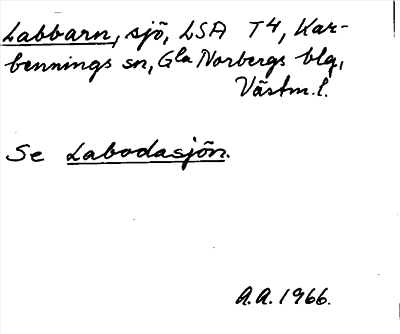 Labbarn, sjö, LSA T4, Kar-
bennings sn, Gla Norbergs blg,
Västm.l.
Se Labodasjön.
A.A. 1966.